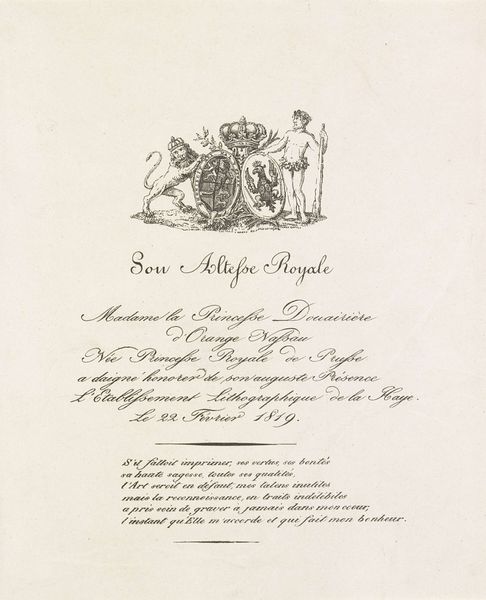 Son Altesse Royale
Madame la Princesse Douairière
d'Orange Nassau
Née Princesse Royale de Prusse
a daigné honorer de son auguste Présence
L'Etablissement Lithographique de la Haye.
Le 22 Fevrier 1819.
S'il falloit imprimer, ses vertus, ses bontés
sa haute sagesse, toutes ses qualités,
l'Art seroit en défaut, mes talens inutiles
mais la reconnoissance, en traits indélébiles
a pris soin de graver a jamais dans mon coeur,
l'instant qu'Elle m'accorde et qui fait mon bonheur.